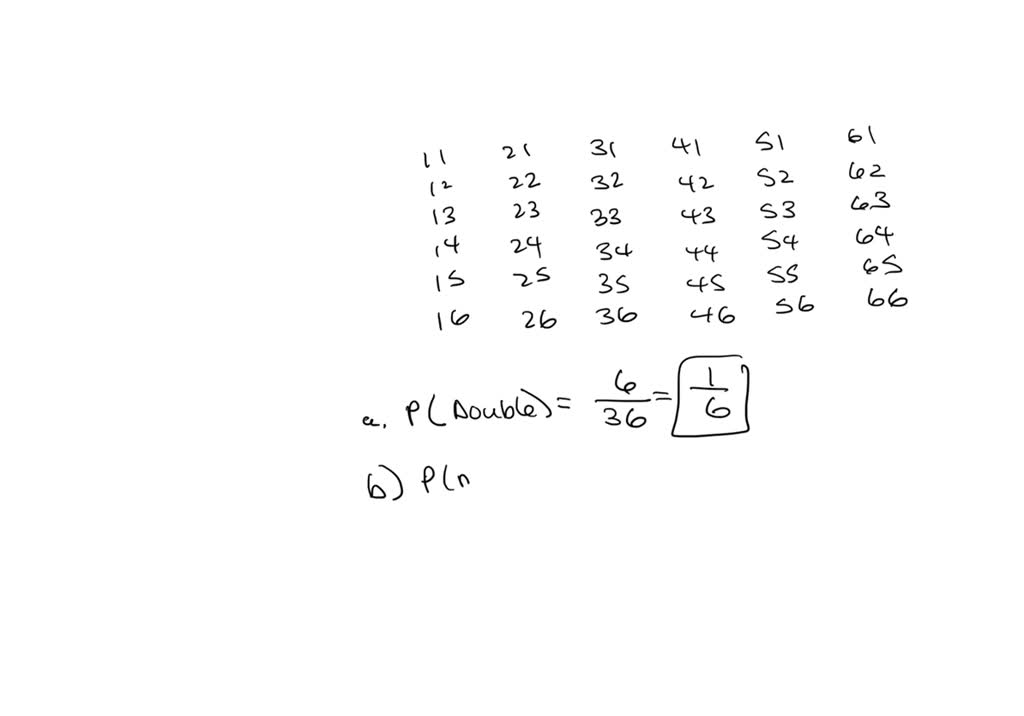 11 21 31 41 51 61
12 22 32 42 52 62
13 23 33 43 53 63
14 24 34 44 54 64
15 25 35 45 55 65
16 26 36 46 56 66
a. P(Double) = 6/36 = 1/6
b) P(n